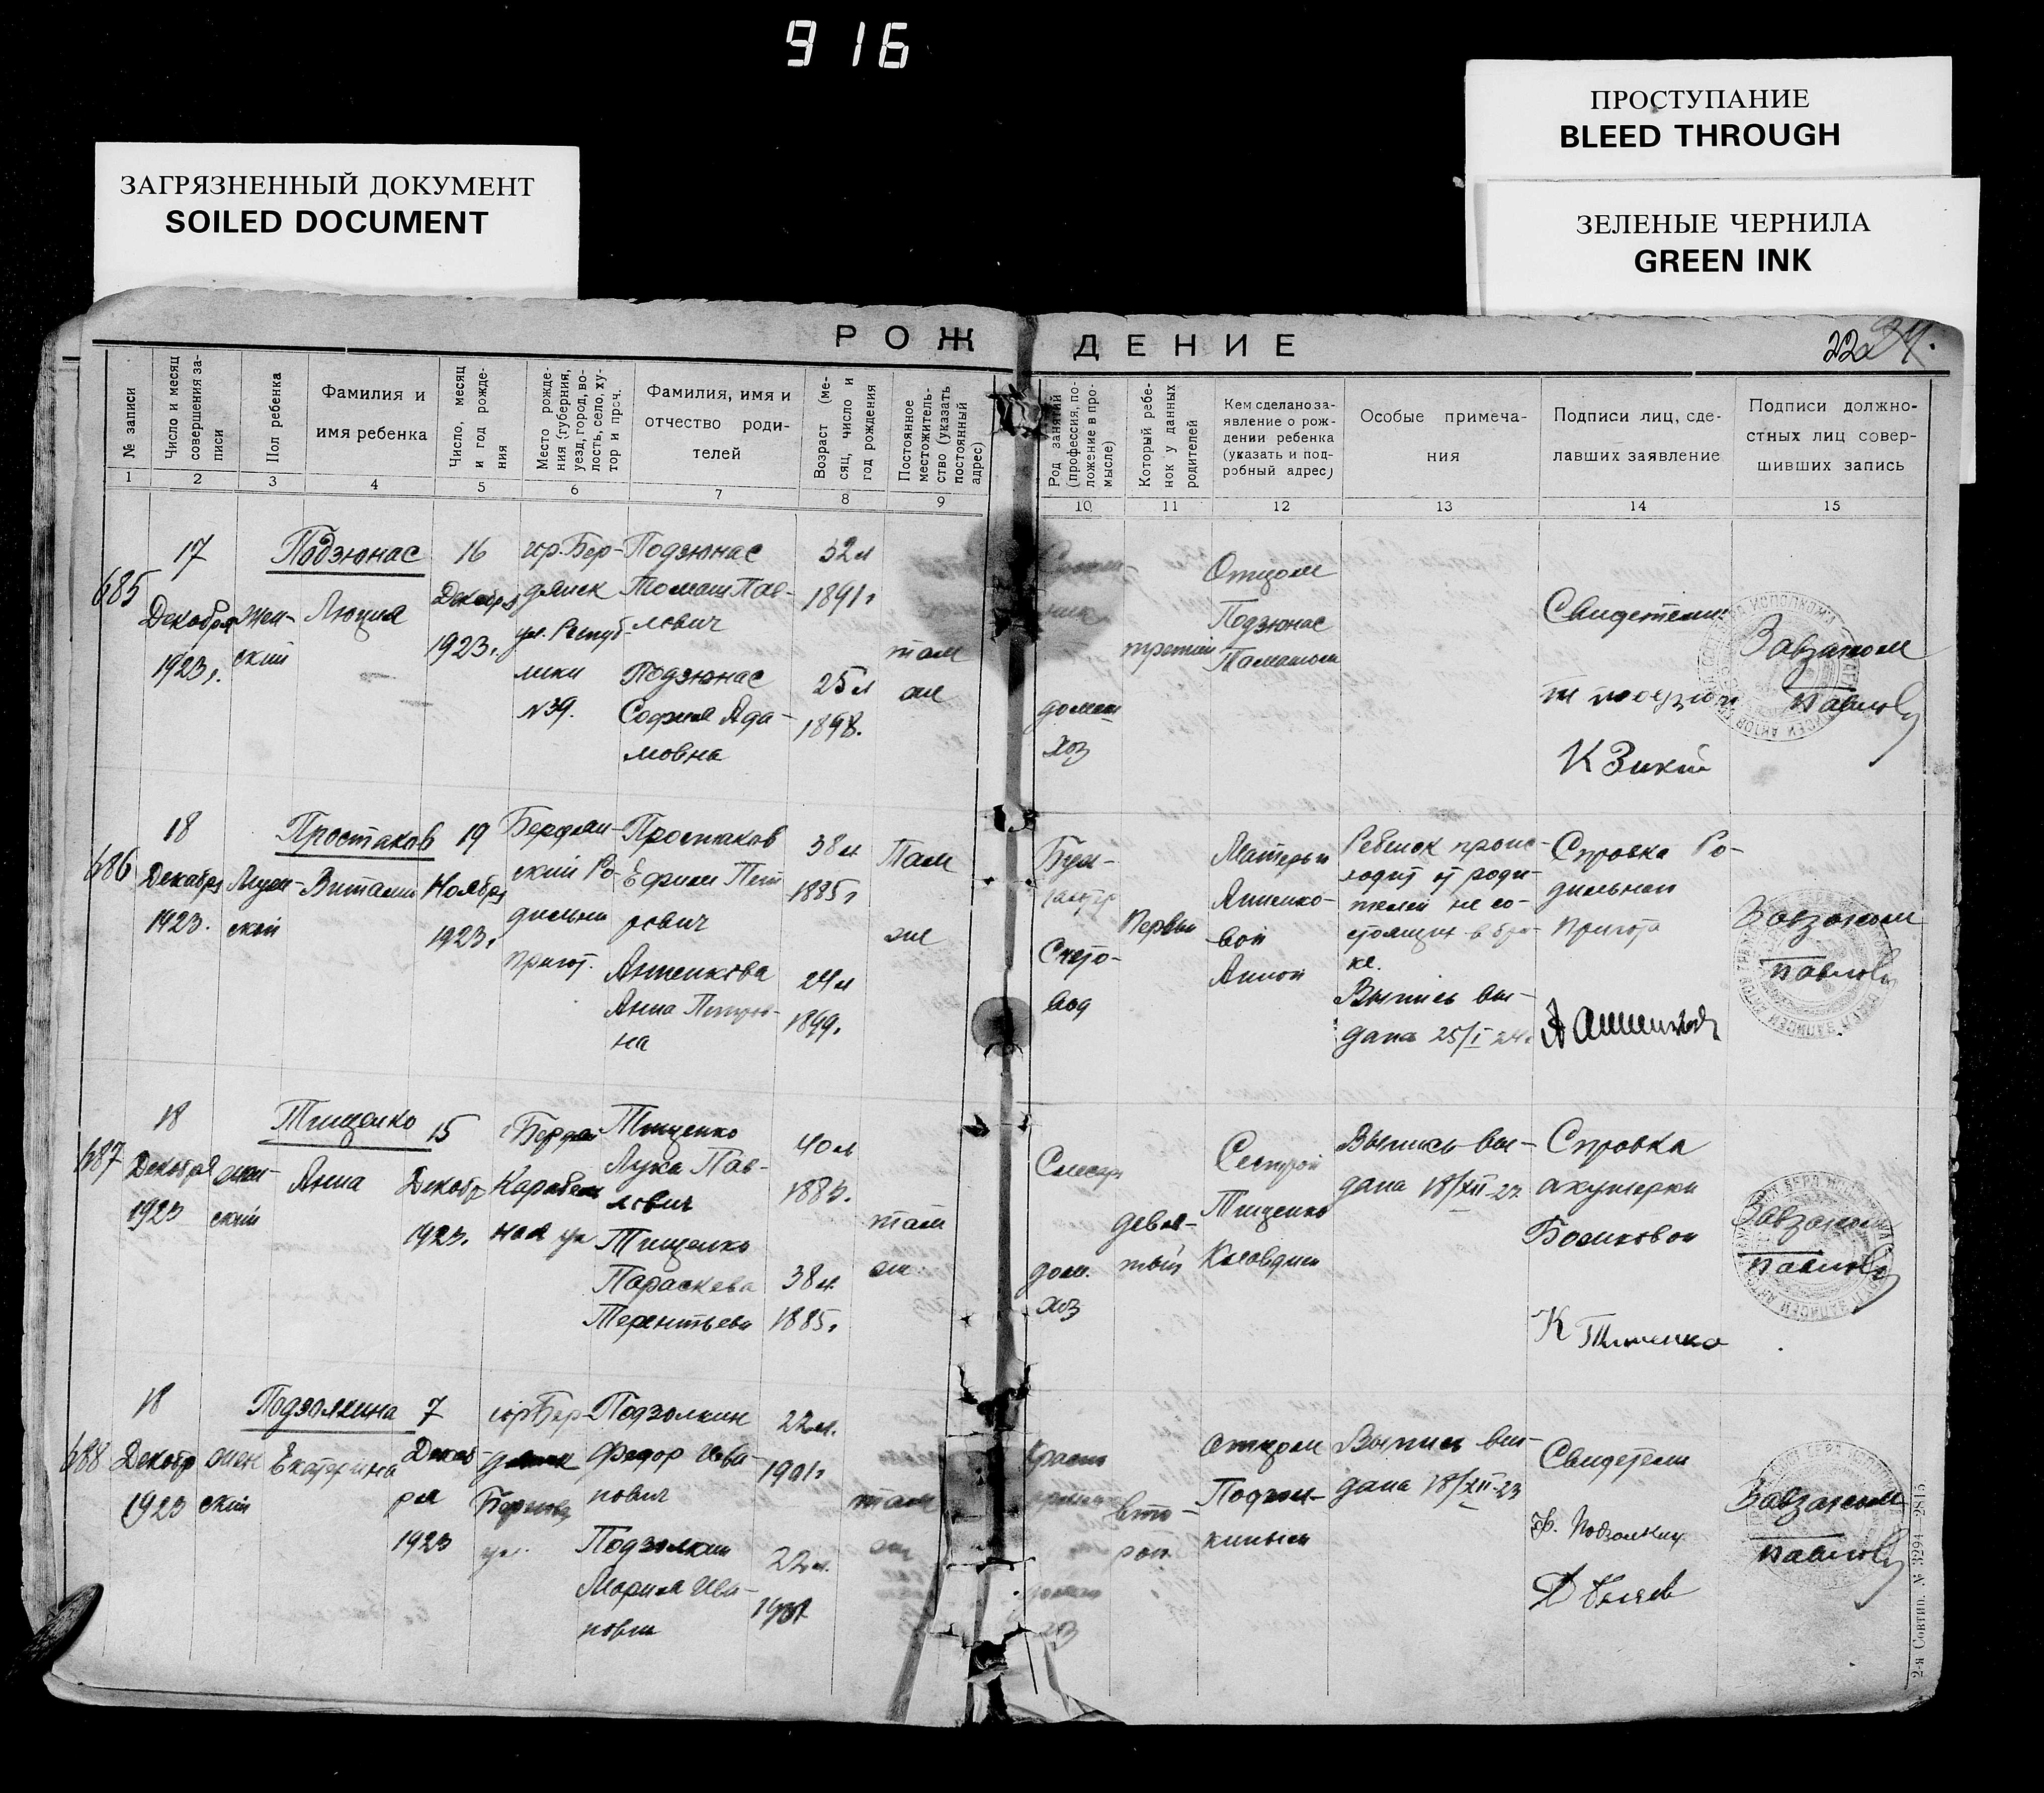 916
ПРОСТУПАНИЕ
BLEED THROUGH
ЗАГРЯЗНЕННЫЙ ДОКУМЕНТ
SOILED DOCUMENT
ЗЕЛЕНЫЕ ЧЕРНИЛА
GREEN INK
РОЖДЕНИЕ
№ записи
Число и месяц
совершения за-
писи
Пол ребенка
Фамилия и
имя ребенка
Число, месяц
и год рожде-
ния
Место рожде-
ния (губерния,
уезд, город, во-
лость, село, ху-
тор и проч.
Фамилия, имя и
отчество роди-
телей
Возраст (ме-
сяц, число и
год рождения
Постоянное
местожитель-
ство (указать
постоянный
адрес)
Род занятий
(профессия, по-
ложение в про-
мысле)
Который ребе-
нок у данных
родителей
Кем сделано за-
явление о рож-
дении ребенка
(указать и под-
робный адрес)
Особые примеча-
ния
Подписи лиц, сде-
лавших заявление
Подписи должно-
стных лиц совер-
шивших запись
1 2 3 4 5 6 7 8 9 10 11 12 13 14 15
685
17
Декабря
1923 г.
Жен-
ский
Подзюнас
Люция
16
Декабря
1923 г.
гор. Бер-
дянск
ул. Респуб-
лики
№39.
Подзюнас
Томаш Пав-
лович
Подзюнас
София Ада-
мовна
32 л
1891 г
25 л
1898.
там
же
домаш
хоз
третий
Отцом
Подзюнас
Свидетели:
К Зикий
Завзагсом
Павлов
686
18
Декабря
1923.
Муж-
ской
Простаков
Виталий
19
Ноября
1923 г.
Бердян-
ский Ро-
дильный
приют.
Простаков
Ефим Пет
рович
Анненкова
Анна Петров-
на
38 л
1885 г
24 л
1899 г.
Там
же
Бух-
галтр
Счето-
вод
Первый
Матерью
Аненко-
вой
Анной
Ребенок проис-
ходит от роди-
телей не со-
стоящих в бра-
ке.
Выпись вы-
дана 25/I 24 г.
Справка Ро-
дильнаго
Приюта
Завзагсом
Павлов
687
18
Декабря
1923
жен-
ский
Тищенко
Анна
15
Декабр
1923.
г Бердян
Карабель
ная ул
Тищенко
Лука Пав-
лович
Тищенко
Параскева
Терентьевн
40 л
1883.
38 л.
1885 г
там
же.
Слесарь
дом.
хоз
девя-
тый
Сестрой
Тищенко
Клавдией
Выпись вы-
дана 18/XII-23
Справка
акушерки
Боликовой
К Тищенко
Завзагсом
Павлов
688
18
Декабр
1923
жен
ский
Подзолкина
Екатерина
7
Декаб-
ря
1923
гор Бер-
дянск
ул.
Подзолкин
Федор Ива-
нович
Подзолкин
Мария Ива-
новна
22 л.
1901 г
22 л.
1901
там
же
хоз
вто-
рой
отцом
Подзол-
киным
Выпись вы-
дана 18/XII-23
Свидетели
Ф. Подзолкин
Д Беляев
Завзагсом
Павлов
2-я Совтип. № 3294—2815